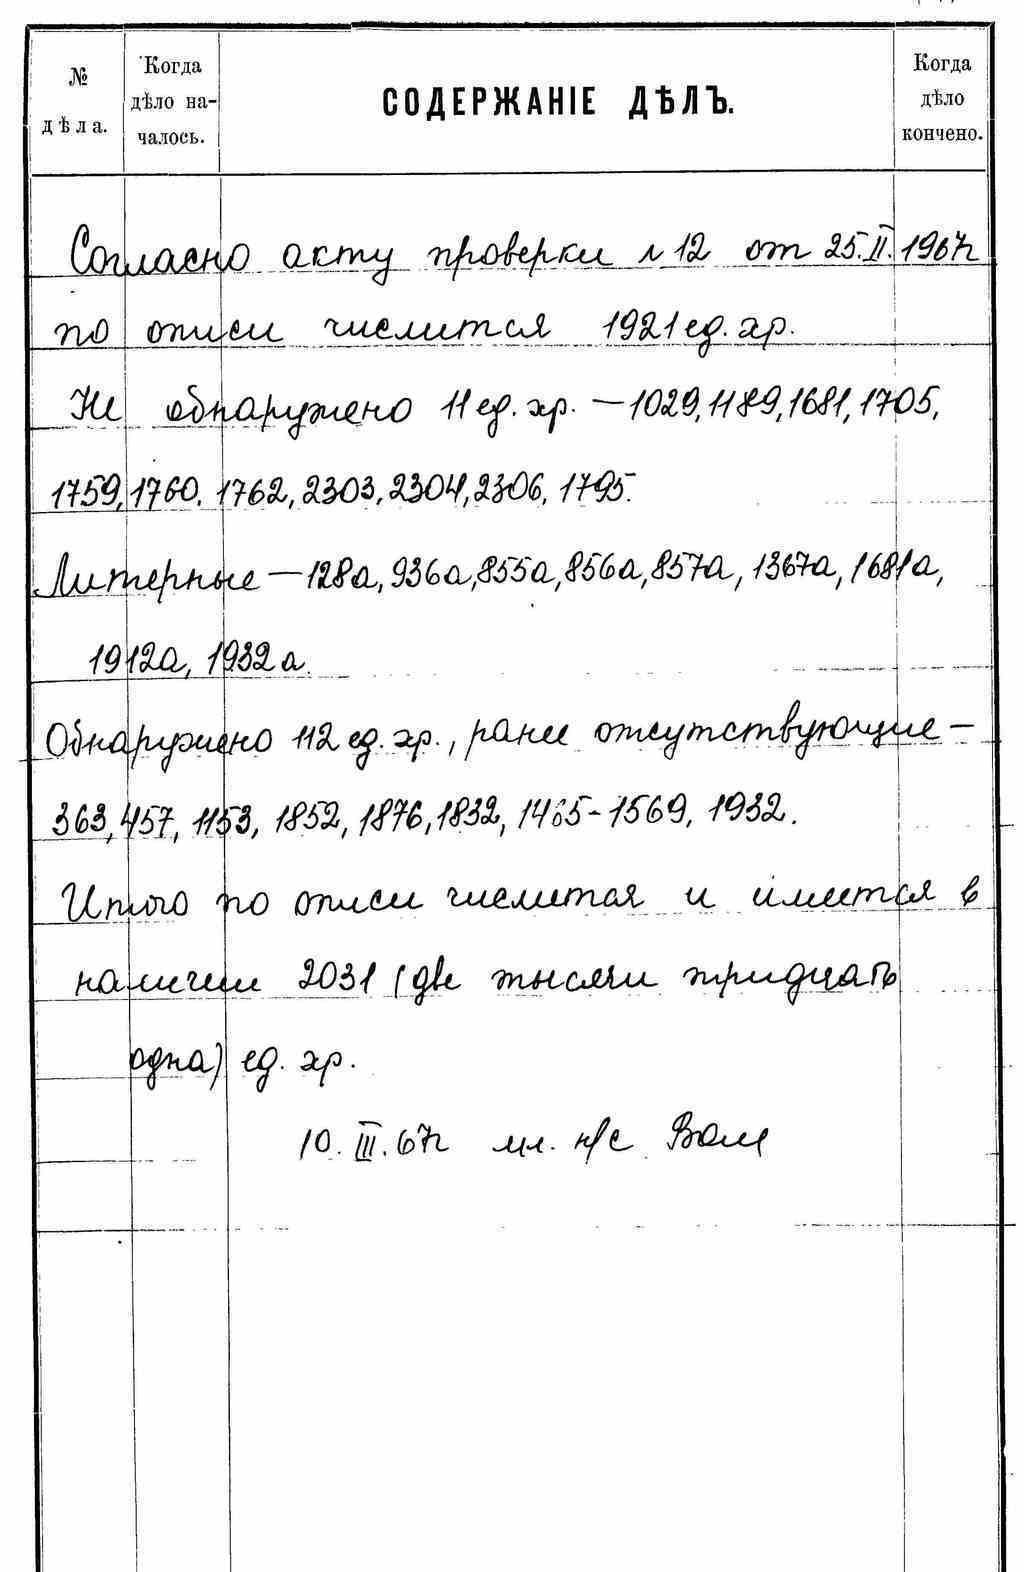 № дѣла.
Когда дѣло на-
чалось.
СОДЕРЖАНІЕ ДѢЛЪ.
Когда дѣло кончено.
Согласно акту проверки № 12 от 25.II.1967г
по описи числится 1921 ед. хр.
Не обнаружено 11 ед. хр. – 1029, 1189, 1681, 1705,
1759, 1760, 1762, 2303, 2304, 2306, 1795.
Литерные – 128а, 936а, 855а, 856а, 857а, 1367а, 1681а,
1912а, 1932а.
Обнаружено 112 ед. хр., ранее отсутствующие –
363, 457, 1153, 1852, 1876, 1832, 1465-1569, 1932.
Итого по описи числится и имеется в
наличии 2031 (две тысячи тридцать
одна) ед. хр.
10.III.67г мл. н/с